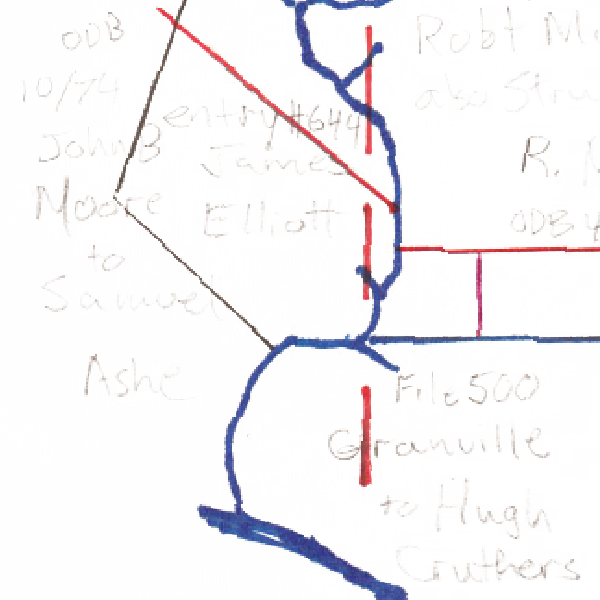 ODB
10/74
John B
Moore
to
Samuel
Ashe
entry #644
James
Elliott
Robt
also
R.
ODB
File 500
Granville
to Hugh
Cruthers